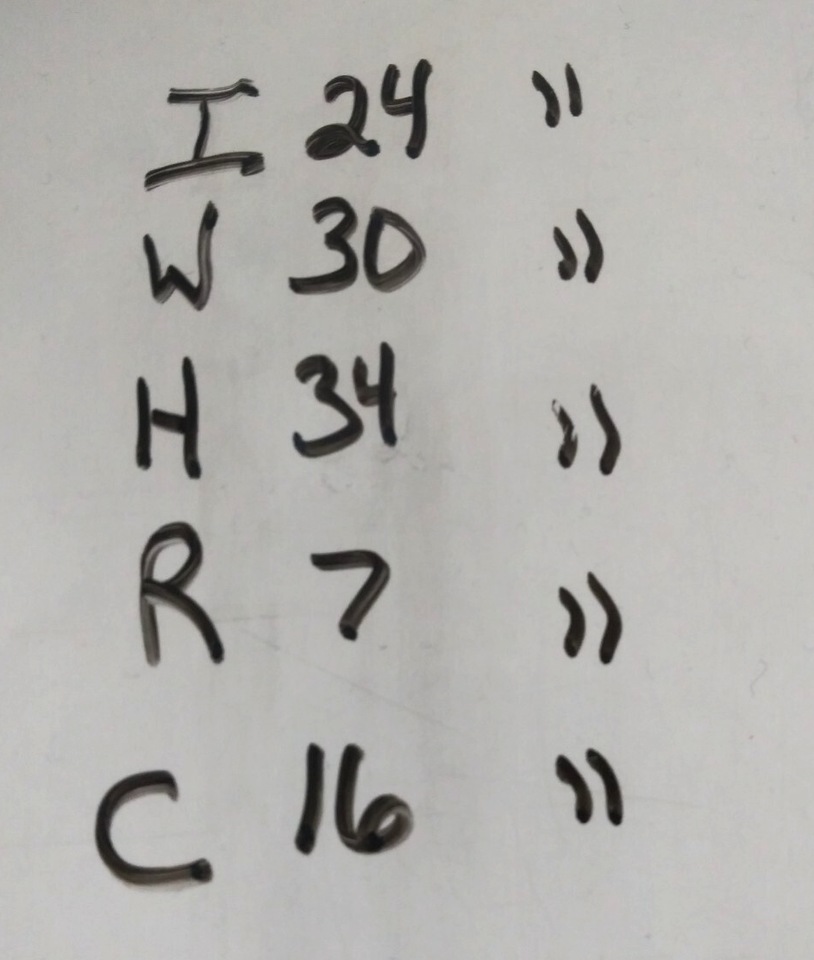 I 24 "
W 30 "
H 34 "
R 7 "
C 16 "